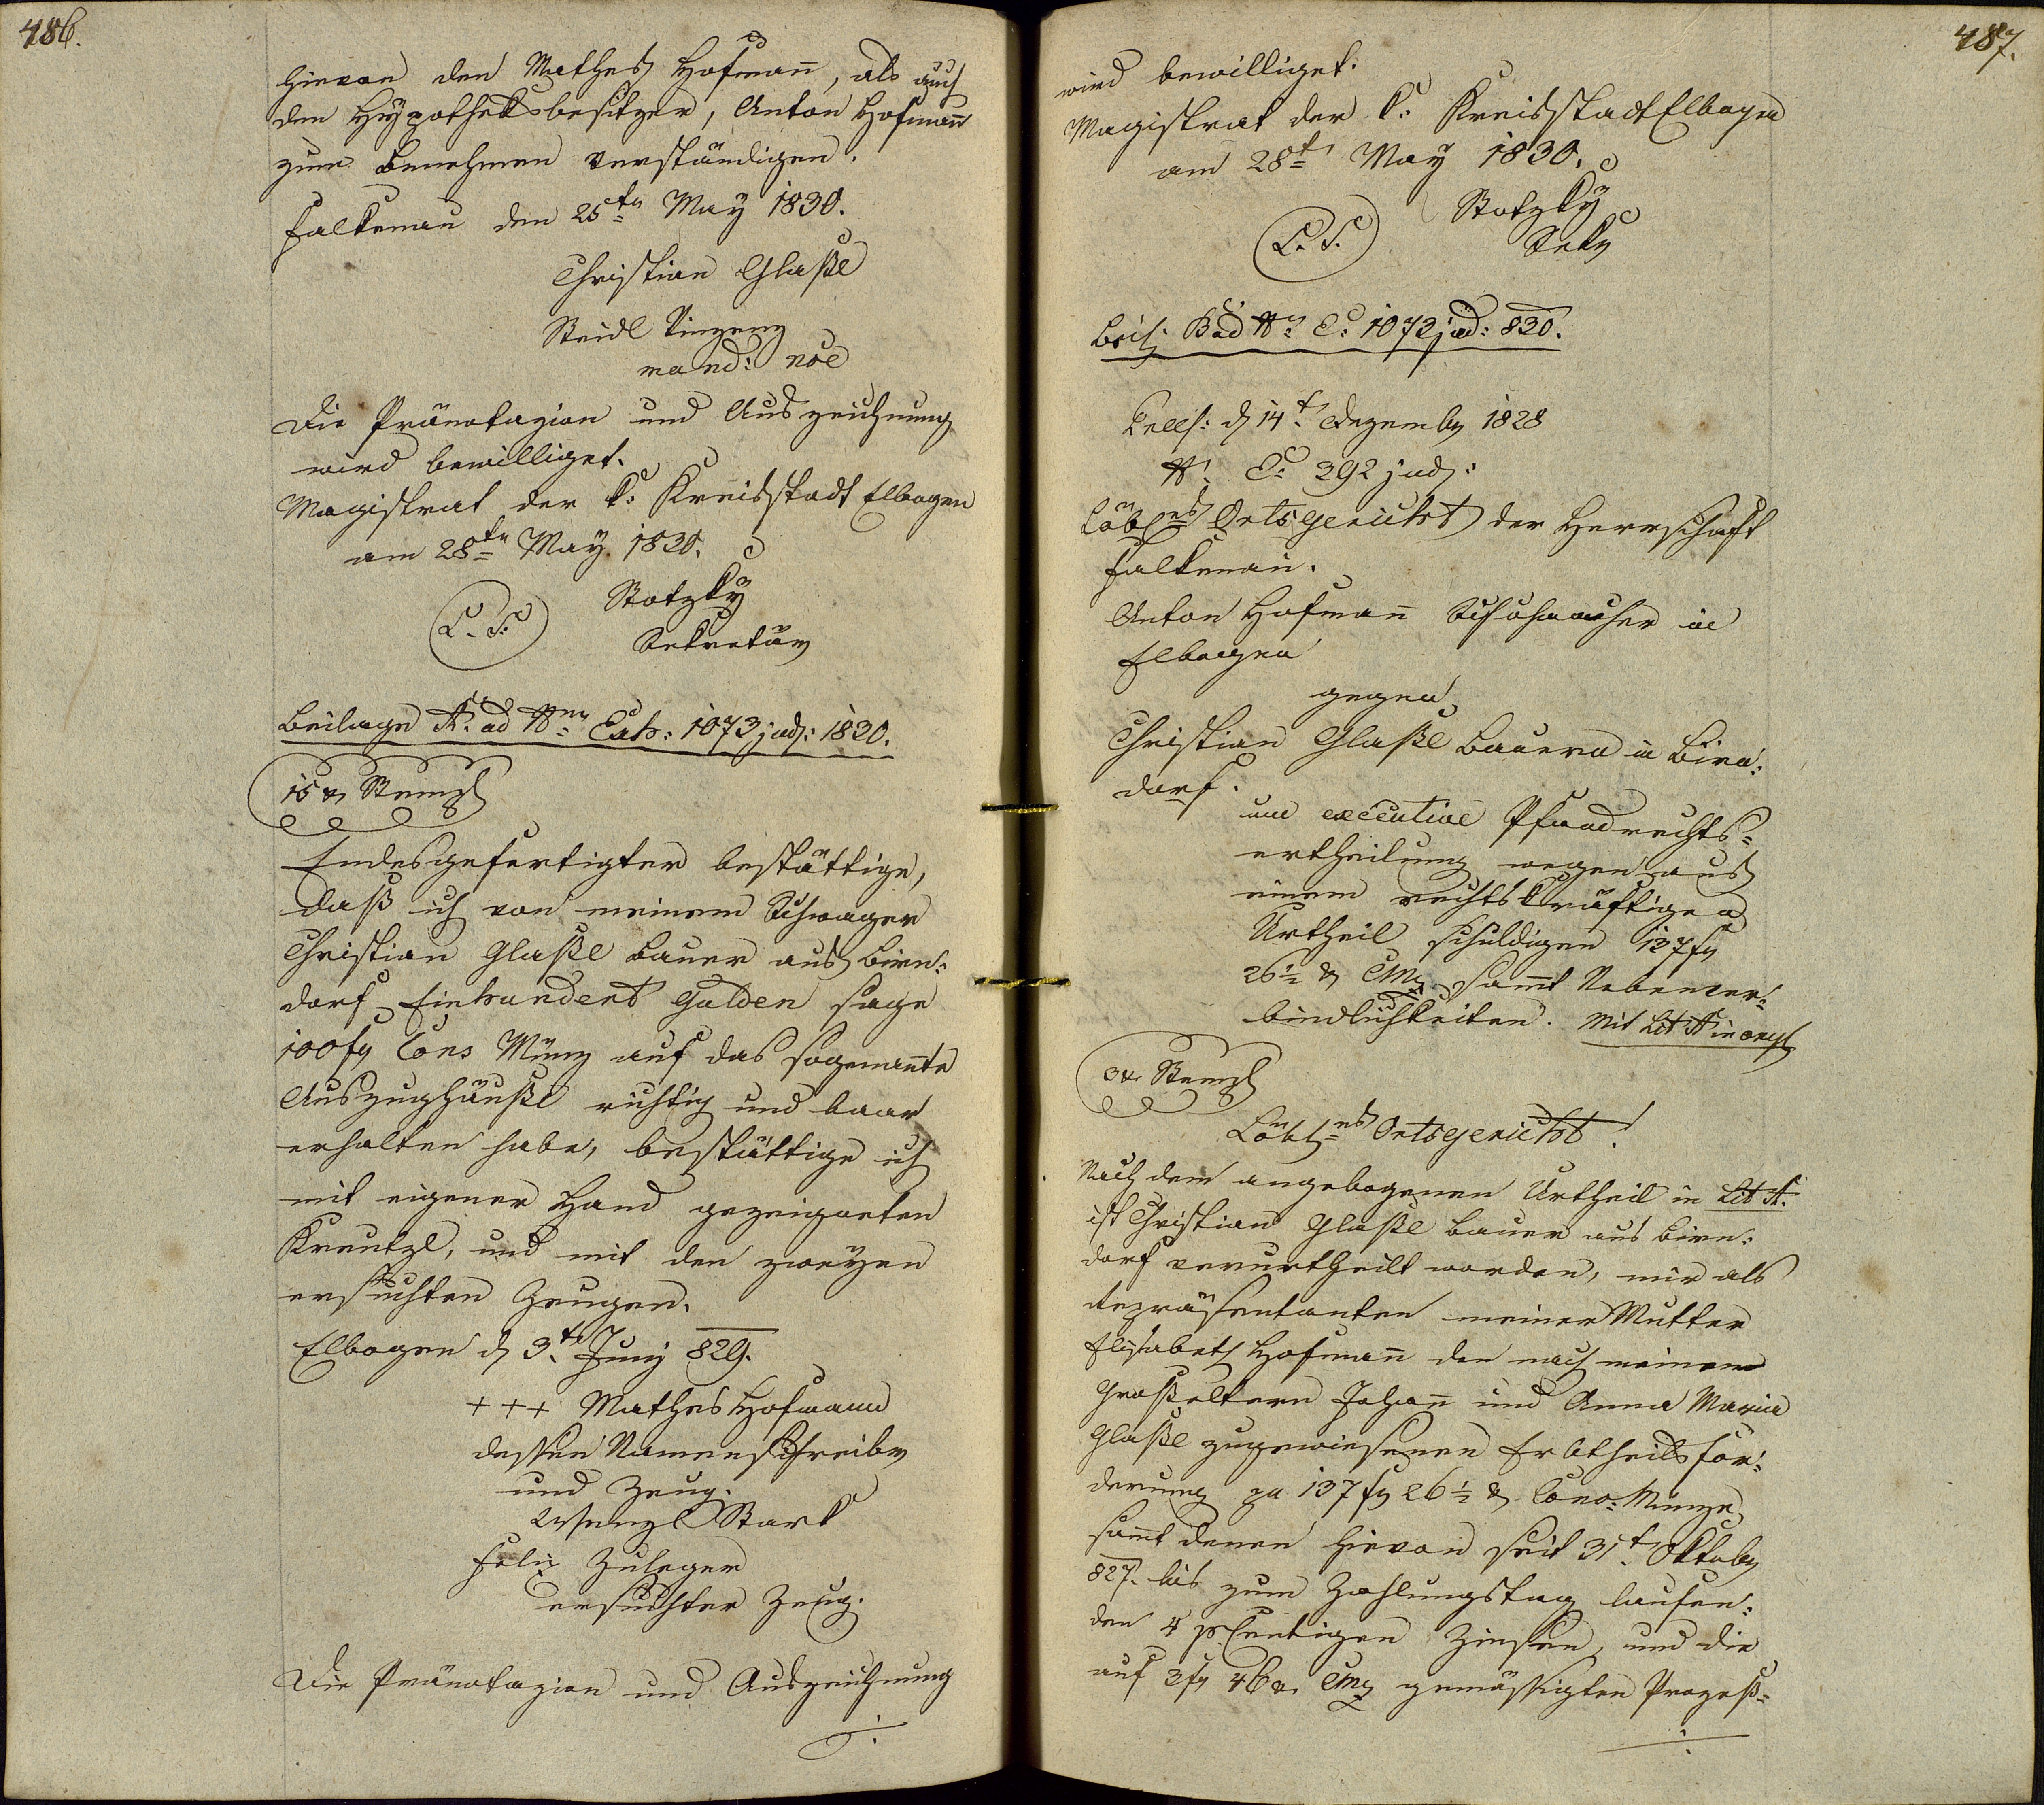 486.
hievon den Mathes Hofmañ, als auch
den Hypotheksbesitzer, Anton Hofmañ
zum Benehmen verständigen.
Falkenau den 25ten May 1830.
Christian Glaßl
Steidl
mand: noe
Die Pränotazion und Auszeichnung
wird bewilliget.
Magistrat der k: Kreisstadt Elbogen
am 28ten May 1830.
L. S.
Stotzky
Sekretär
Beilage A. ad Nrm Exh: 1073 jud: 1830.
15 xr Stempl
Endesgefertigter bestättige,
daß ich von meinem Schwager
Christian Glaßl Bauer aus Birn:
dorf Einhundert Gulden sage
100 fr Cons Münz auf das sogenañte
Auszughäußl richtig und baar
erhalten habe, bestättige ich
mit eigener Hand gezeigneten
Kreutzl, und mit den zweyen
ersuchten Zeugen.
Elbogen d 3t Juny 829.
+++ Mathes Hofmann
dessen Namensschreiber
und Zeug.
Wenzl Stark
Felix Zuleger
ersuchter Zeug.
Die Pränotazion und Auszeichnung
./.
487.
wird bewilliget.
Magistrat der k: Kreisstadt Elbogen
am 28t May 1830.
L. S.
Stotzky
Sekr
Beil: B ad Nr E: 1073 jud: 830.
d 14t Dezember 1828
Nr. E: 392 jud:
Löbles Ortsgericht der Herrschaft
Falkenau.
Anton Hofmañ Schuhmacher in
Elbogen
gegen
Christian Glaßl Bauern in Birn:
dorf.
um executive Pfandrechts=
ertheilung wegen aus
einem rechtskräftigen
Urtheil schuldigen 137 fr
26½ xr CMz sam̃t Nebenver:
bindlichkeiten. Mit Lit A in
3 xr Stempl
Löbles Ortsgericht!
Nach dem angebogenen Urtheil in Lit A.
ist Christian Glaßl Bauer aus Birn:
dorf verurtheilt worden, mir als
Repräsentanten meiner Mutter
Elisabeth Hofmañ den nach meinen
Großeltern Johañ und Anna Maria
Glaßl zugewiesenen Erbtheilsfor:
derung pr 137 fr 26½ xr Conv: Münze
sam̃t denen hievon seit 31t Oktober
827. bis zum Zahlungstag laufen:
den 4 pCentigen Zinsen, und die
auf 3 fr 46 xr CMz gemässigten Prozeß=
./.